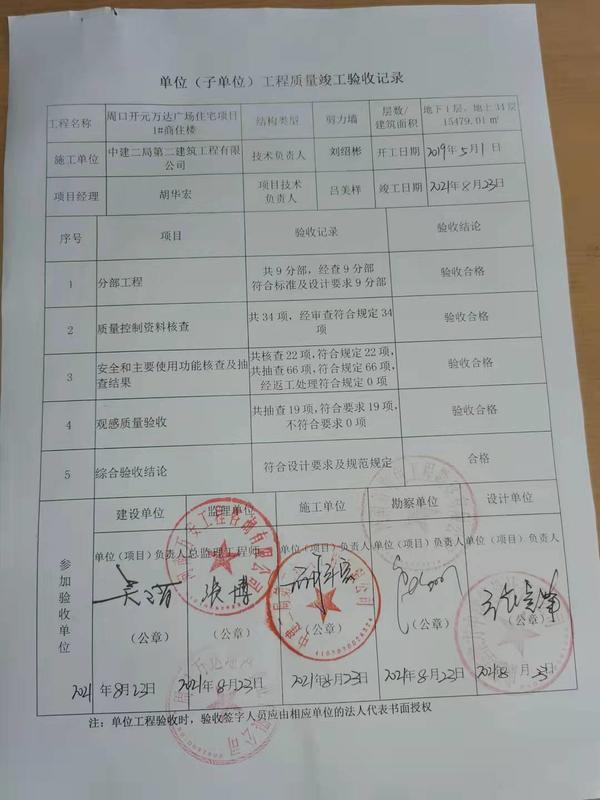 单位（子单位）工程质量竣工验收记录
工程名称
周口开元万达广场住宅项目
1#商住楼
结构类型
剪力墙
层数/
建筑面积
地下1层、地上34层
15479.01㎡
施工单位
中建二局第二建筑工程有限
公司
技术负责人
刘绍彬
开工日期
2019年5月1日
项目经理
胡华宏
项目技术
负责人
吕美样
竣工日期
2021年8月23日
序号
项目
验收记录
验收结论
1
分部工程
共9分部，经查9分部
符合标准及设计要求9分部
验收合格
2
质量控制资料核查
共34项，经审查符合规定34
项
验收合格
3
安全和主要使用功能核查及抽
查结果
共核查22项,符合规定22项,
共抽查66项,符合规定66项,
经返工处理符合规定0项
验收合格
4
观感质量验收
共抽查19项,符合要求19项,
不符合要求0项
验收合格
5
综合验收结论
符合设计要求及规范规定
合格
参加验收单位
建设单位
监理单位
施工单位
勘察单位
设计单位
单位（项目）负责人
总监理工程师
单位（项目）负责人
单位（项目）负责人
单位（项目）负责人
（公章）
（公章）
（公章）
（公章）
（公章）
2021年8月23日
2021年8月23日
2021年8月23日
2021年8月23日
2021年8月23日
注：单位工程验收时，验收签字人员应由相应单位的法人代表书面授权